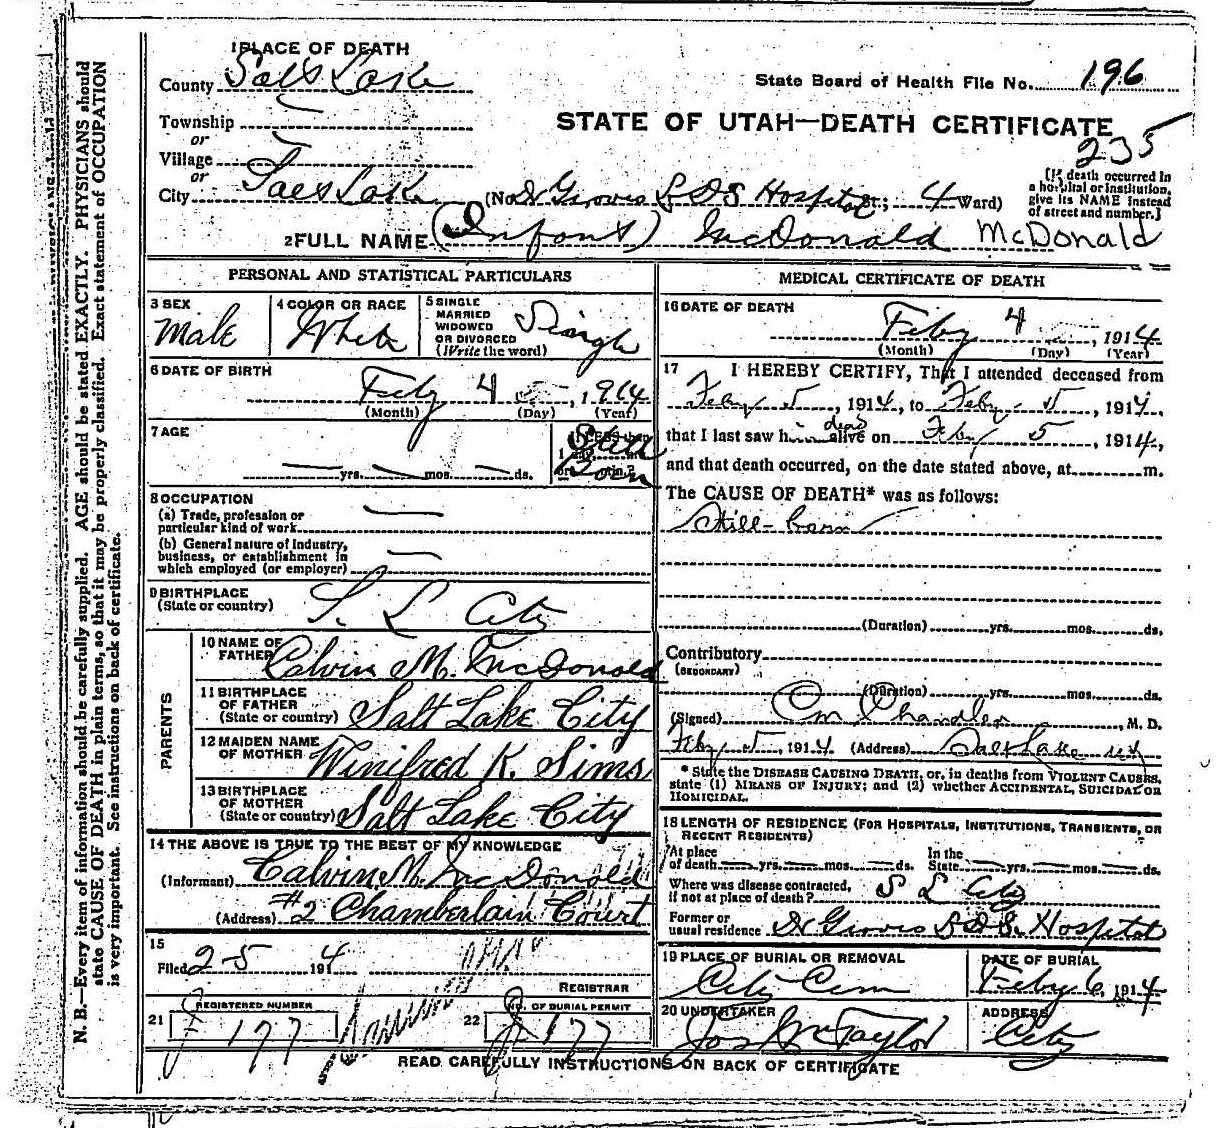 1 PLACE OF DEATH
County Salt Lake
State Board of Health File No. 196
Township
or
Village
or
City Salt Lake
STATE OF UTAH—DEATH CERTIFICATE
235
(No. Dr Groves L D S Hospital St.; 4 Ward)
[If death occurred in
a hospital or institution,
give its NAME instead
of street and number.]
2 FULL NAME (Infant) McDonald McDonald
PERSONAL AND STATISTICAL PARTICULARS
3 SEX
Male
4 COLOR OR RACE
White
5 SINGLE
MARRIED
WIDOWED
OR DIVORCED
(Write the word)
Single
6 DATE OF BIRTH
Feby 4, 1914
(Month) (Day) (Year)
7 AGE
Still
Born
yrs. mos. ds.
8 OCCUPATION
(a) Trade, profession or
particular kind of work
(b) General nature of Industry,
business, or establishment in
which employed (or employer)
9 BIRTHPLACE
(State or country)
S. L City
PARENTS
10 NAME OF
FATHER
Calvin M. McDonald
11 BIRTHPLACE
OF FATHER
(State or country)
Salt Lake City
12 MAIDEN NAME
OF MOTHER
Winifred K. Sims
13 BIRTHPLACE
OF MOTHER
(State or country)
Salt Lake City
14 THE ABOVE IS TRUE TO THE BEST OF MY KNOWLEDGE
(Informant) Calvin M. McDonald
(Address) #2 Chamberlain Court
15
Filed 2-5 1914
REGISTRAR
REGISTERED NUMBER
21 J 177
NO. OF BURIAL PERMIT
22 J 177
MEDICAL CERTIFICATE OF DEATH
16 DATE OF DEATH
Feby 4, 1914
(Month) (Day) (Year)
17 I HEREBY CERTIFY, That I attended deceased from
Feby 5, 1914, to Feby 5, 1914,
that I last saw h alive dead on Feby 5, 1914,
and that death occurred, on the date stated above, at m.
The CAUSE OF DEATH* was as follows:
Still-born
(Duration) yrs. mos. ds.
Contributory
(SECONDARY)
(Duration) yrs. mos. ds.
(Signed) C M Chandler M. D.
Feby 5, 1914 (Address) Salt Lake
* State the DISEASE CAUSING DEATH, or, in deaths from VIOLENT CAUSES,
state (1) MEANS OF INJURY; and (2) whether ACCIDENTAL, SUICIDAL or
HOMICIDAL.
18 LENGTH OF RESIDENCE (FOR HOSPITALS, INSTITUTIONS, TRANSIENTS, OR
RECENT RESIDENTS)
At place
of death yrs. mos. ds.
In the
State yrs. mos. ds.
Where was disease contracted,
if not at place of death? S L City
Former or
usual residence Dr Groves L D S. Hospital
19 PLACE OF BURIAL OR REMOVAL
City Cem
DATE OF BURIAL
Feby 6, 1914
20 UNDERTAKER
Jos Wm Taylor
ADDRESS
City
READ CAREFULLY INSTRUCTIONS ON BACK OF CERTIFICATE
N. B.—Every item of information should be carefully supplied. AGE should be stated EXACTLY. PHYSICIANS should
state CAUSE OF DEATH in plain terms, so that it may be properly classified. Exact statement of OCCUPATION
is very important. See instructions on back of certificate.